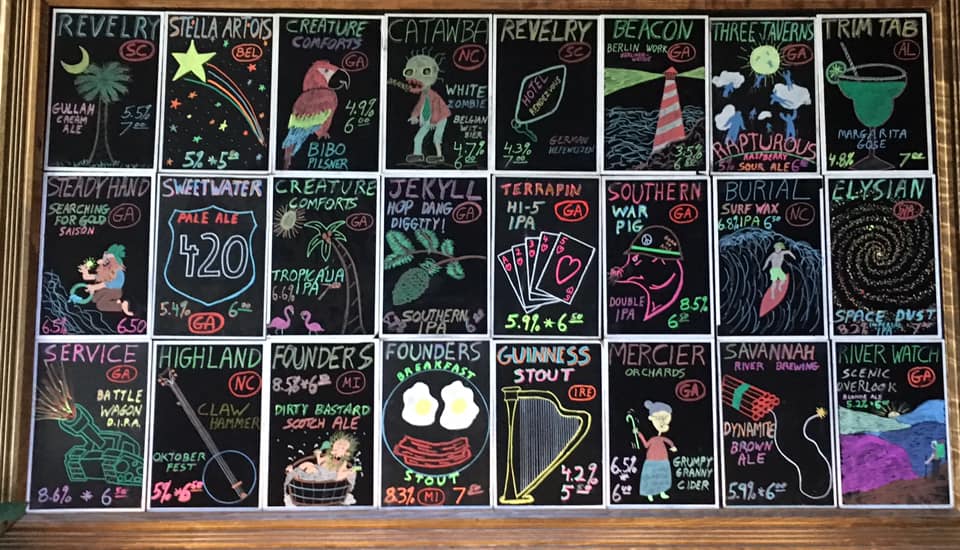 REVELRY
SC
GULLAH
CREAM
ALE
5.5%
7.00
STELLA ARTOIS
BEL
5% * 5.50
CREATURE
COMFORTS
GA
4.9%
6.00
BIBO
PILSNER
CATAWBA
NC
BRAAAINS
WHITE
ZOMBIE
BELGIAN
WIT-
BIER
4.7%
6.00
REVELRY
SC
HOTEL
RENDEZVOUS
GERMAN
HEFEWEIZEN
4.3%
7.00
BEACON
BERLIN WORK
BERLINER-
WEISSE
GA
3.5%
6.00
THREE TAVERNS
GA
RAPTUROUS
RASPBERRY
5% SOUR ALE 6
TRIM TAB
AL
MARGARITA
GOSE
4.8% 7.00
STEADY HAND
SEARCHING
FOR GOLD
SAISON
GA
6.5% 6.50
SWEETWATER
PALE ALE
420
5.4% 6.00
GA
CREATURE
COMFORTS
GA
TROPICALIA
IPA
6.6% 7
JEKYLL
HOP DANG
DIGGITY!
GA
SOUTHERN
IPA
TERRAPIN
HI-5
IPA
GA
A
2
3
4
5
5.9% * 6.50
SOUTHERN
WAR
PIG
GA
DOUBLE
IPA
8.5%
6.50
BURIAL
SURF WAX
6.8% IPA 6.50
NC
ELYSIAN
WA
SPACE DUST
8.2% IMPERIAL 7.00
IPA
SERVICE
GA
BATTLE
WAGON
D.I.P.A.
8.6% * 6.50
HIGHLAND
NC
CLAW
HAMMER
OKTOBER
FEST
5% * 6.50
FOUNDERS
8.5% * 6.50 MI
DIRTY BASTARD
SCOTCH ALE
FOUNDERS
BREAKFAST
STOUT
8.3% MI 7.50
GUINNESS
STOUT
IRE
4.2%
5.50
MERCIER
ORCHARDS
GA
6.5%
6.00
GRUMPY
GRANNY
CIDER
SAVANNAH
RIVER BREWING
DYNAMITE
BROWN
ALE
5.9% * 6.50
RIVER WATCH
SCENIC
OVERLOOK
BLONDE ALE
5.2% * 6.50
GA